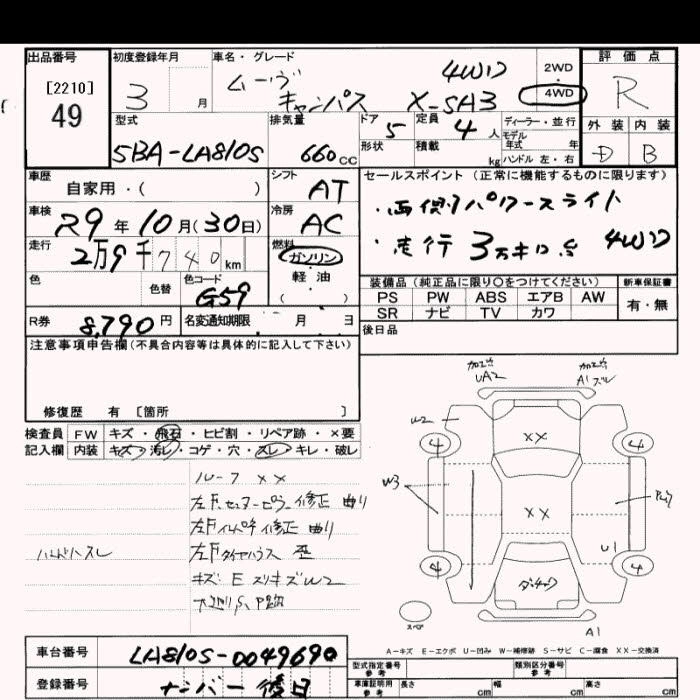 出品番号 初度登録年月 車名・グレード 評価点
[2210]
49
3 月
ムーヴ 4WD
キャンバス X-SA3
2WD
・
4WD
R
型式 排気量 ドア 定員 ディーラー・並行
5BA-LA810S 660cc 5 4人
モデル年式 年
形状 積載 kg ハンドル 左・右
外装 内装
D B
車歴 シフト セールスポイント(正常に機能するものに限ります)
自家用・( ) AT
・両側パワースライド
車検 冷房
R9年10月(30日) AC
・走行3万キロ台 4WD
走行 燃料
2万9千740km ガソリン
軽油
( )
色 色替 色コード
G59
装備品(純正品に限り○をつけてください) 新車保証書
PS PW ABS エアB AW 有・無
SR ナビ TV カワ
R券 8,790円 名変通知期限 月 日
後日品
注意事項申告欄(不具合内容等は具体的に記入して下さい)
修復歴 有 [箇所 ]
検査員 FW キズ・飛石・ヒビ割・リペア跡・×要
記入欄 内装 キズ・汚レ・コゲ・穴・スレ・キレ・破レ
ルーフ ××
左F.センターピラー修正 曲り
左Fインパネ修正 曲り
左Fタイヤハウス 歪
ハンドルスレ
キズ E スリキズW2
加工済
UA2
加工済
A1 スレ
W2
4 4
××
W3
××
U1
4 4
スペア
A1
A-キズ E-エクボ U-凹み W-補修跡 S-サビ C-腐食 XX-交換済
車台番号 LA810S-0049690
登録番号 ナンバー後日
型式指定番号 参考 類別区分番号 参考
車庫証明用 参考 長さ cm 幅 cm 高さ cm